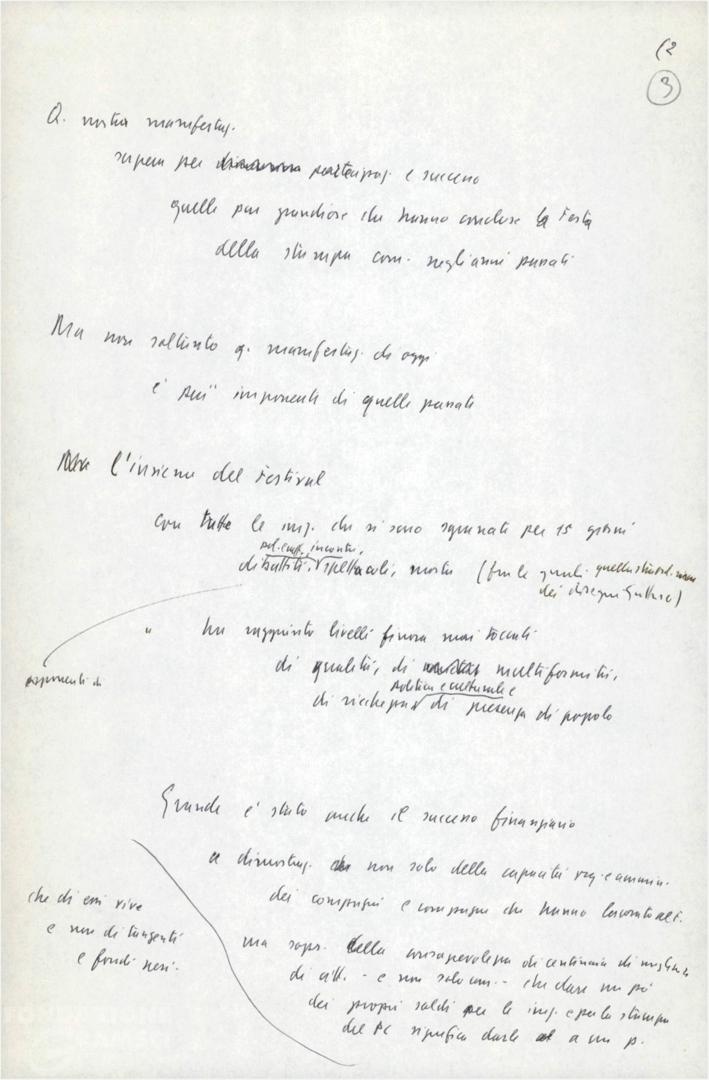 (2
3
Q. nostra manifestaz.
supera per partecipaz. e successo
quelle pur grandiose che hanno concluso la Festa
della stampa com. negli anni passati
Ma non soltanto q. manifestaz. di oggi
è più imponente di quelle passate
Ma l'insieme del Festival
con tutte le iniz. che si sono sgranate per 15 giorni
incontri,
dibattiti, spettacoli, mostre (fra le quali quella
dei disegni Guttuso)
" ha raggiunto livelli finora mai toccati
di qualità, di multiformità,
esponenti di
politica e culturale e
di ricchezza di presenza di popolo
Grande è stato anche il successo finanziario
a dimostraz. non solo della capacità org. e ammin.
dei compagni e compagne che hanno lavorato al F.
che di essi vive
e non di tangenti
e fondi neri.
ma sopr. della consapevolezza di centinaia di migliaia
di citt. - e non solo com. - che dare un pò
dei propri soldi per le iniz. e per la stampa
del PC significa darli a un p.